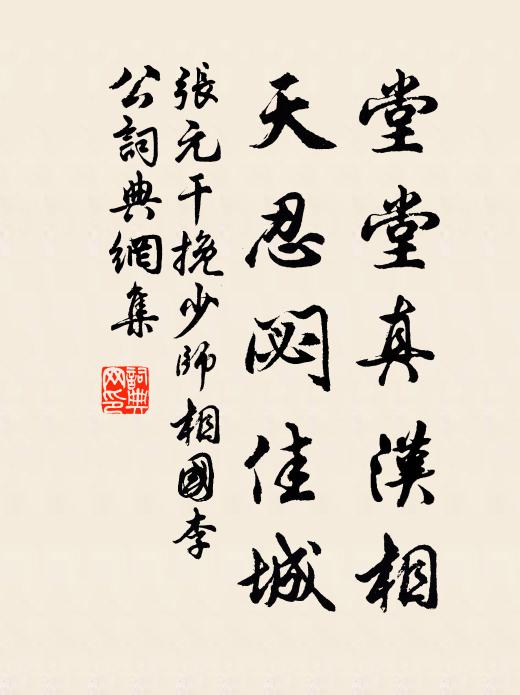 堂堂真漢相
天忍閟佳城
張元干挽少師相國李
公詞典網集
詞典
网印